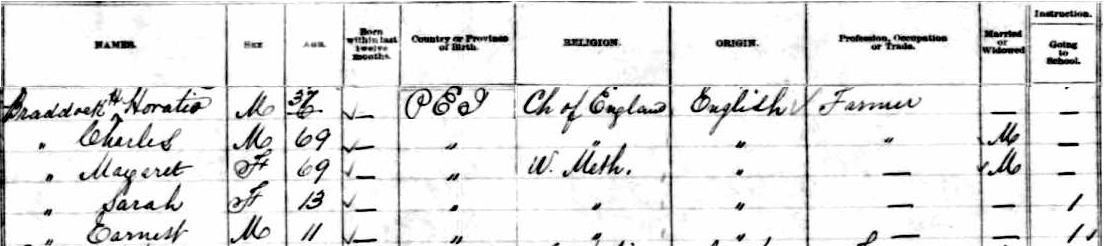 NAMES. SEX AGE. Born within last twelve months. Country or Province of Birth. RELIGION. ORIGIN. Profession, Occupation or Trade. Married or Widowed Instruction. Going to School.
Braddock Horatio M 37 — P E I Ch of England English Farmer — —
" Charles M 69 — " " " " M —
" Magaret F 69 — " W. Meth. " — M —
" Sarah F 13 — " " " — — 1
" Earnest M 11 — " " " — — 1